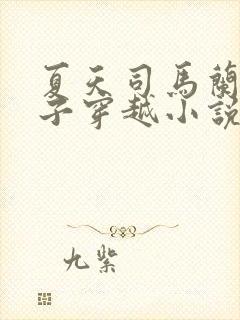 夏天司馬蘭
子穿越小說
九紫